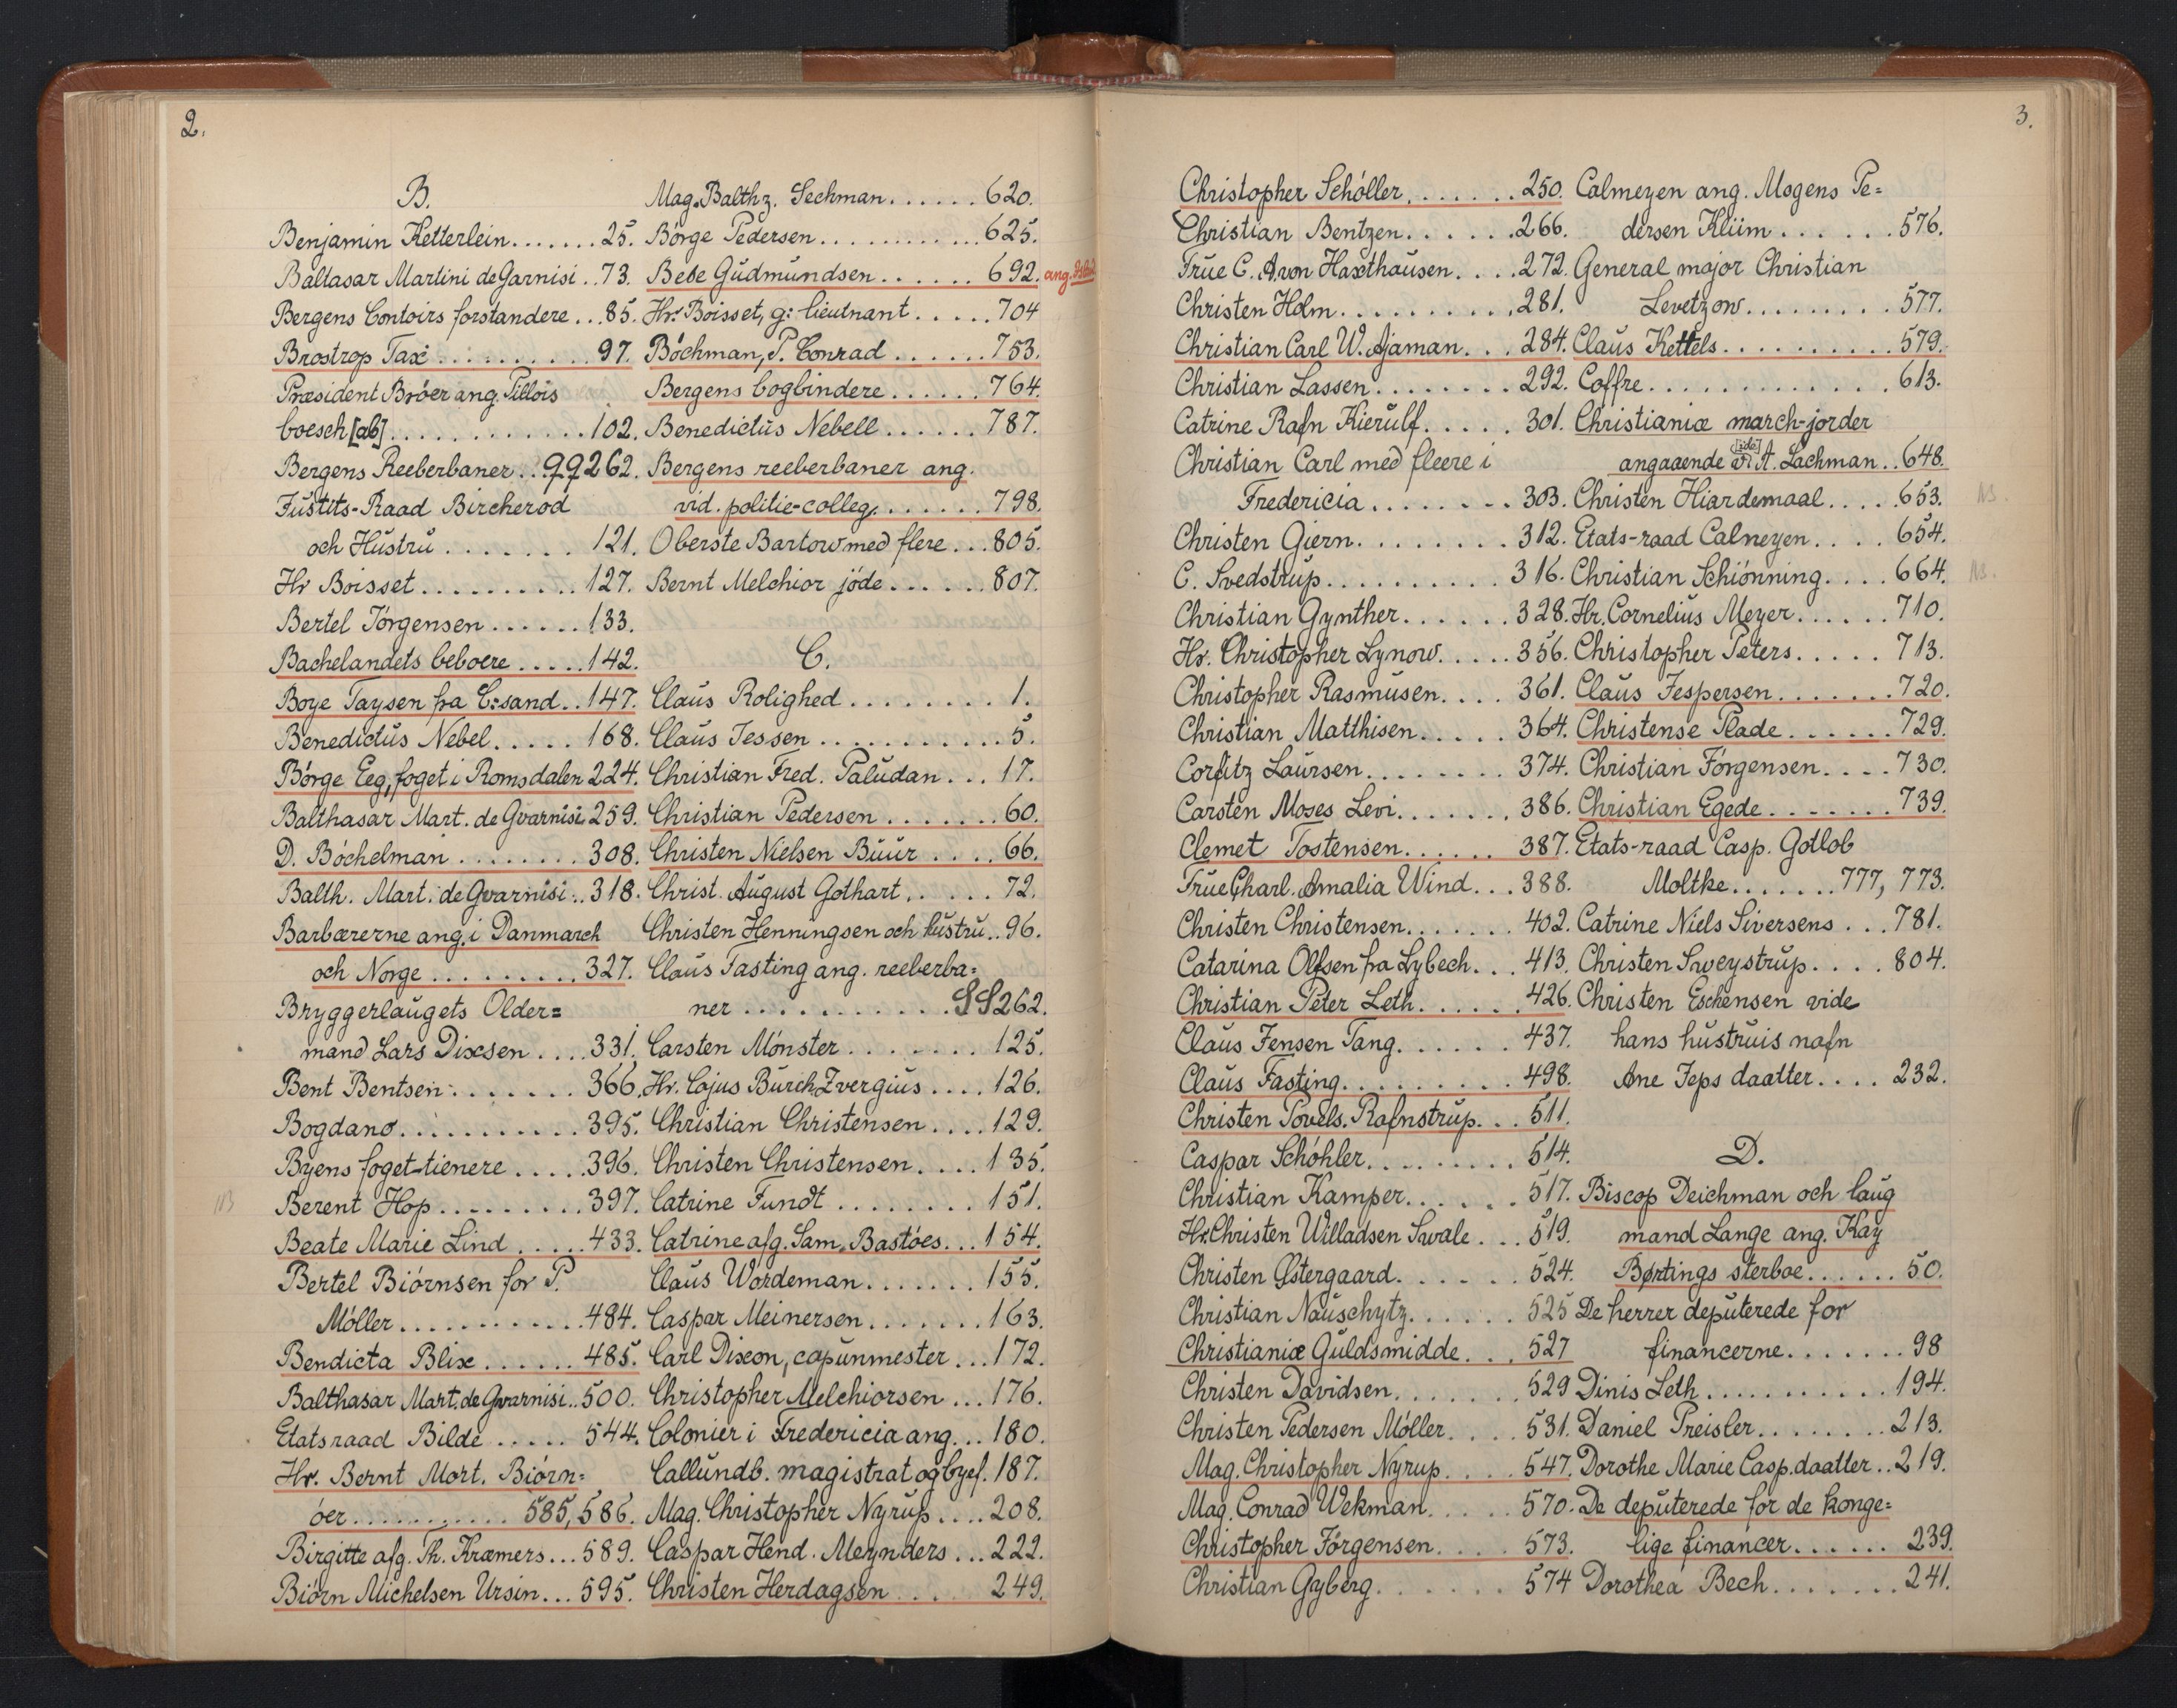 2.
B.
Benjamin Ketterlein.......25.
Baltasar Martini de Garnisi..73.
Bergens Contoirs forstandere...85.
Brostrop Tax..........97.
Præsident Bröer ang. Tillois
boesch [ab].............102.
Bergens Reeberbaner..992 62.
Justits-Raad Bircherod
och Hustru.......121.
Hr Boisset..........127.
Bertel Jörgensen......133.
Bachelandets beboere.....142.
Boye Taysen fra C:sand..147.
Benedictus Nebel.....168.
Börge Eeg, foget i Romsdalen 224.
Balthasar Mart. de Gvarnisi 259.
D. Böchelman........308.
Balth. Mart. de Gvarnisi..318.
Barbærerne ang. i Danmarch
och Norge.........327.
Bryggerlaugets Older=
mand Lars Dixsen....331.
Bent Bentsen.......366.
Bogdano...........395.
Byens foget-tienere.....396.
NB Berent Hop.........397.
Beate Marie Lind.....433.
Bertel Biörnsen for P.
Möller...........484.
Bendicta Blix......485.
Balthasar Mart. de Gvarnisi..500.
Etatsraad Bilde.....544.
Hr. Bernt Mort. Biörn=
öer...........585, 586.
Birgitte afg. Th. Kræmers...589.
Biörn Michelsen Ursin...595.
Mag. Balthz. Sechman......620.
Börge Pedersen...........625.
Bese Gudmundsen......692.
Hr. Boisset, g: lieutnant.....704
Böchman, P. Conrad......753.
Bergens bogbindere......764.
Benedictus Nebell......787.
Bergens reeberbaner ang.
vid. politie-colleg.......798.
Oberste Bartow med flere...805.
Bernt Melchior jöde......807.
C.
Claus Rolighed........1.
Claus Jessen...........5.
Christian Fred. Paludan...17.
Christian Pedersen.......60.
Christen Nielsen Buur....66.
Christ. August Gothart......72.
Christen Henningsen och hustru..96.
Claus Fasting ang. reeberba=
ner............SS262.
Carsten Mönster........125.
Hr. Cajus Burch. Zvergius....126.
Christian Christensen....129.
Christen Christensen....135.
Catrine Fundt........151.
Catrine afg. Sam. Bastöes...154.
Claus Wordeman.......155.
Caspar Meinersen.......163.
Carl Dixon, capunmester...172.
Christopher Melchiorsen...176.
Colonier i Fredericia ang...180.
Callundb. magistrat og byef. 187.
Mag. Christopher Nyrup....208.
Caspar Hend. Meynders...222.
Christen Herdagsen....249.
3.
Christopher Schöller.......250.
Christian Bentzen......266.
Frue C. A. von Haxthausen....272.
Christen Holm..........281.
Christian Carl W. Ajaman...284.
Christian Lassen........292.
Catrine Rafn Kierulf.....301.
Christian Carl med fleere i
Fredericia........303.
Christen Giern........312.
C. Svedstrup..........316.
Christian Gynther......328.
Hr. Christopher Lynow.....356.
Christopher Rasmusen....361.
Christian Matthisen.....364.
Corfitz Laursen........374.
Carsten Moses Levi.......386.
Clemet Tostensen......387.
Frue Charl. Amalia Wind...388.
Christen Christensen.......402.
Catarina Olfsen fra Lybech...413.
Christian Peter Leth......426.
Claus Jensen Tang......437.
Claus Fasting.........498.
Christen Povels. Rafnstrup...511.
Caspar Schöhler.........514.
Christian Kamper......517.
Hr. Christen Willadsen Swale...519.
Christen Østergaard......524.
Christian Nauschytz......525
Christianiæ Guldsmidde...527
Christen Davidsen.......529
Christen Pedersen Möller....531.
Mag. Christopher Nyrup....547.
Mag. Conrad Wekman.....570.
Christopher Jörgensen....573.
Christian Gyberg.......574
Calmeyen ang. Mogens Pe=
dersen Kliim......576.
General major Christian
Levetzow.........577.
Claus Kettels..........579.
Coffre.............613.
Christianiæ march-jorder
angaaende [ide] A. Lachman..648.
Christen Hiardemaal.....653. NB.
Etats-raad Calneyen....654.
Christian Schiönning....664. NB.
Hr. Cornelius Meyer......710.
Christopher Peters.....713.
Claus Jespersen.......720.
Christense Plade......729.
Christian Jörgensen....730.
Christian Egede........739.
Etats-raad Casp. Gotlob
Moltke.......777, 773.
Catrine Niels Siversens...781.
Christen Sweystrup....804.
Christen Eschensen vide
hans hustruis nafn
Ane Jeps daatter....232.
D.
Biscop Deichman och laug
mand Lange ang. Kay
Børtings sterboe......50.
De herrer deputerede for
financerne.......98
Dinis Leth...........194.
Daniel Preisler........213.
Dorothe Marie Casp. daatter..219.
De deputerede for de konge=
lige financer......239.
Dorothea Bech........241.